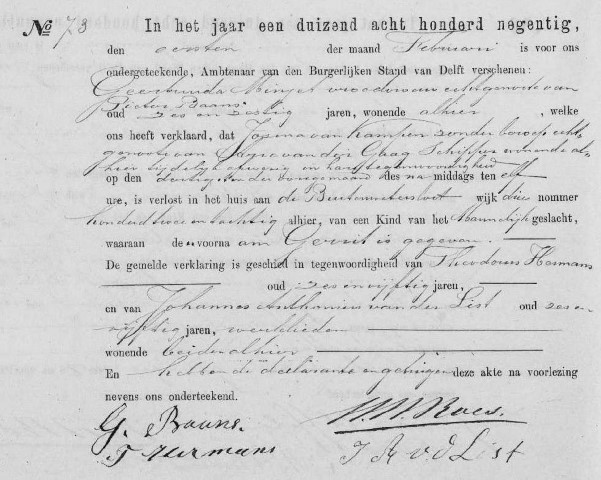 No 73 In het jaar een duizend acht honderd negentig,
den eersten der maand Februari is voor ons
ondergeteekende, Ambtenaar van den Burgerlijken Stand van Delft verschenen:
Geertruida vroedvrouw echtgenoote van
Pieter Baans
oud zes en zestig jaren, wonende alhier, welke
ons heeft verklaard, dat Josina van Kampen zonder beroep echt-
genoote van van der Gaag Schipper wonende al-
hier tijdelijk afwezig in haar tegenwoordigheid
op den dertigsten der voorgemaand des na middags ten elf
ure, is verlost in het huis aan de Buitenwatersloot wijk drie nummer
honderd twee en tachtig alhier, van een Kind van het Mannelijk geslacht,
waaraan de voorna am Gerrit is gegeven.
De gemelde verklaring is geschied in tegenwoordigheid van Theodorus Hermans
oud zes en vijftig jaren,
en van Johannes Anthonius van der List oud zes en
vijftig jaren, werklieden
wonende beiden alhier
En hebben de declarante en getuigen deze akte na voorlezing
nevens ons onderteekend.
G. Baans. Roes.
T Hermans J A v. d List